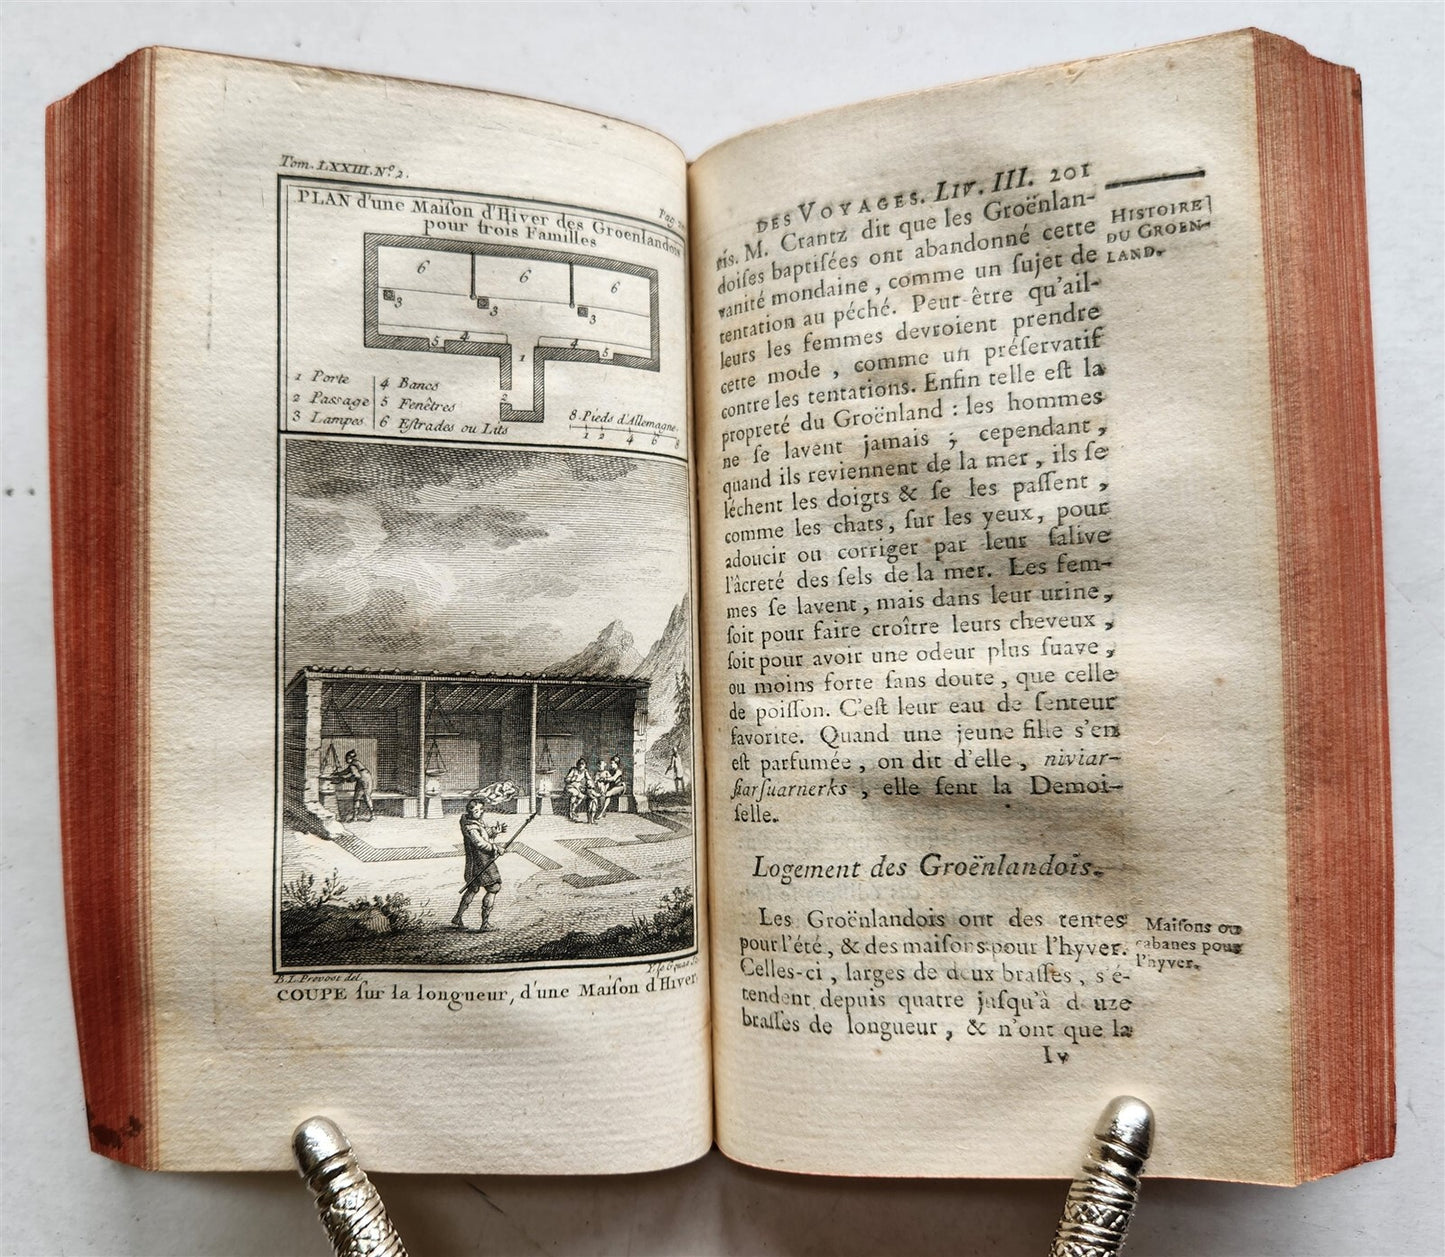 Tom. LXXIII. Nº. 2.
Pag.
PLAN d'une Maiſon d'Hiver des Groenlandois
pour trois Familles
6 6 6
3 3 3
5 4 4 5
1
2
1 Porte
2 Passage
3 Lampes
4 Bancs
5 Fenêtres
6 Eſtrades ou Lits
8 Pieds d'Allemagne
1 2 4 6 8
B. L. Prevost del.
COUPE ſur la longueur, d'une Maiſon d'Hiver
DES VOYAGES. LIV. III. 201
HISTOIRE
DU GROEN-
LAND.
ris. M. Crantz dit que les Groënlan-
doiſes baptiſées ont abandonné cette
vanité mondaine, comme un ſujet de
tentation au péché. Peut-être qu'ail-
leurs les femmes devroient prendre
cette mode, comme un préſervatif
contre les tentations. Enfin telle eſt la
propreté du Groënland : les hommes
ne ſe lavent jamais ; cependant,
quand ils reviennent de la mer, ils ſe
léchent les doigts & ſe les paſſent,
comme les chats, ſur les yeux, pour
adoucir ou corriger par leur ſalive
l'âcreté des ſels de la mer. Les fem-
mes ſe lavent, mais dans leur urine,
ſoit pour faire croître leurs cheveux,
ſoit pour avoir une odeur plus ſuave,
ou moins forte ſans doute, que celle
de poiſſon. C'eſt leur eau de ſenteur
favorite. Quand une jeune fille s'en
eſt parfumée, on dit d'elle, niviar-
ſiarſuarnerks, elle ſent la Demoi-
ſelle.
Logement des Groënlandois.
Les Groënlandois ont des tentes
pour l'été, & des maiſons pour l'hyver.
Celles-ci, larges de deux braſſes, s'é-
tendent depuis quatre juſqu'à douze
braſſes de longueur, & n'ont que la
Maiſons ou
cabanes pour
l'hyver.
I v